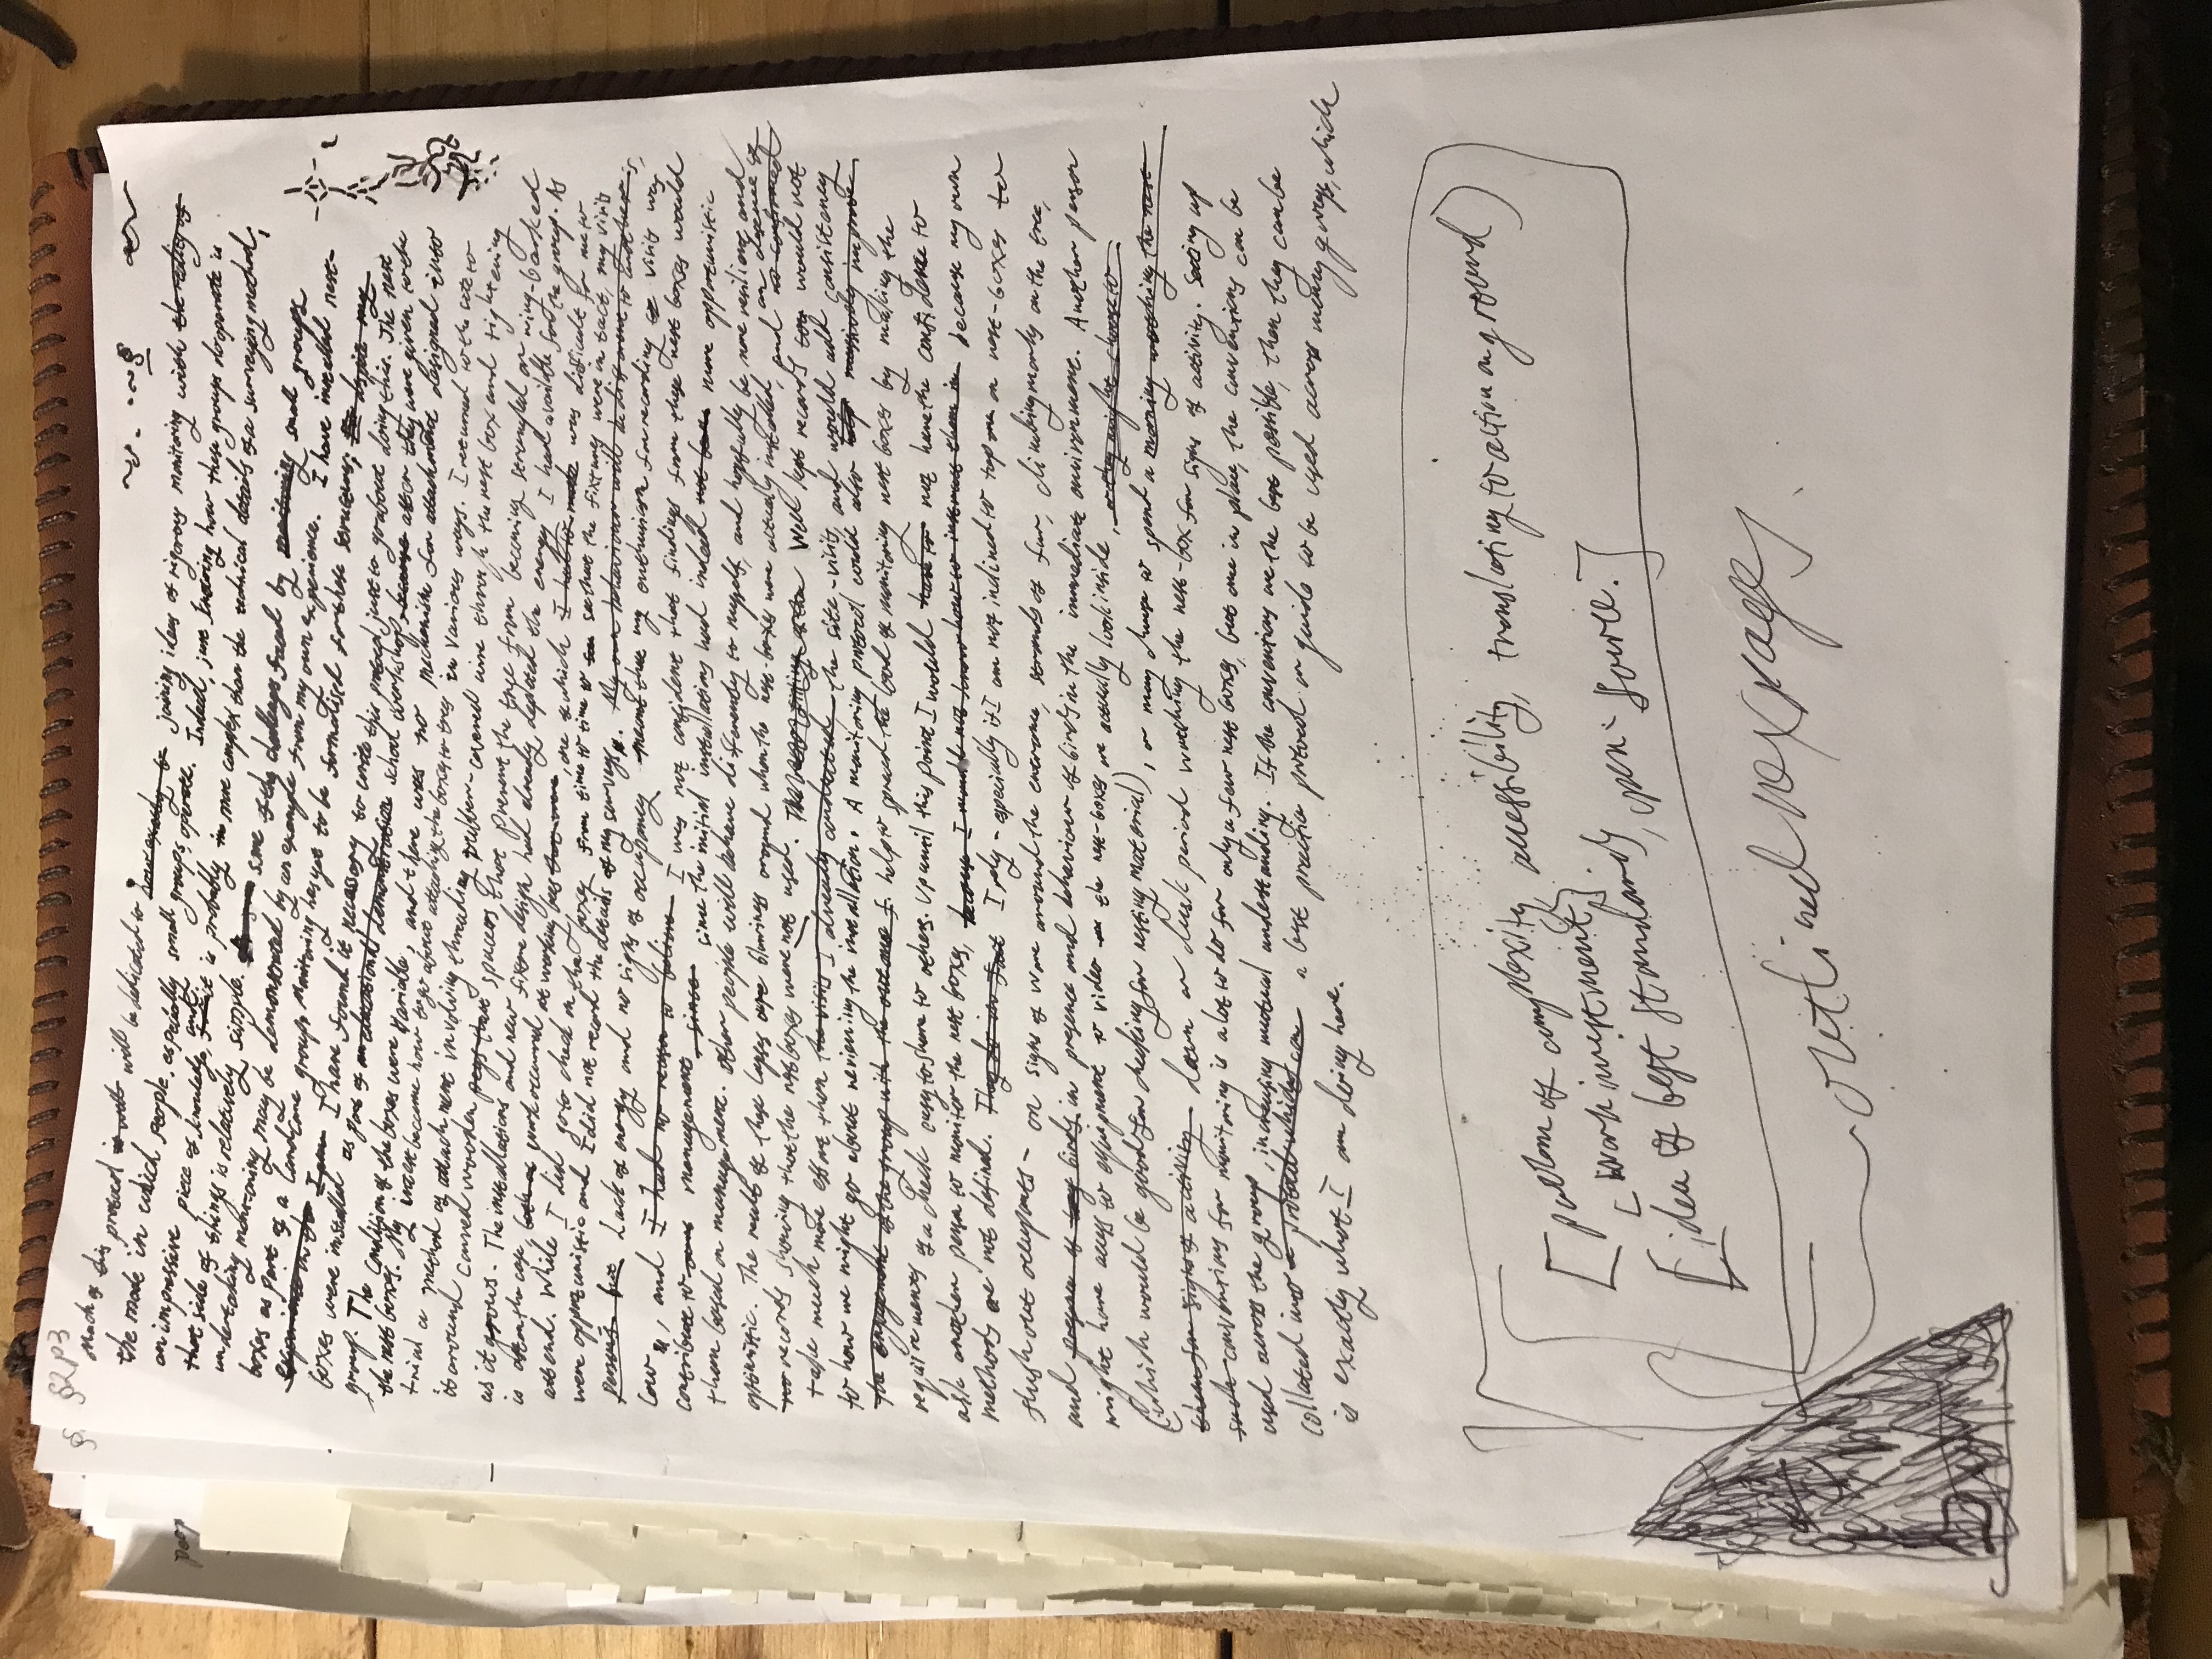 §2 p3
Much of this protocol is well will be dedicated to how exactly to joining ideas of rigorous monitoring with the reality of
the mode in which people, especially small groups, operate. Indeed, just knowing how these groups do operate is
an impressive piece of knowledge, and it is probably more complex than the technical details of a surveying method;
that side of things is relatively simple. some of the challenges faced by monitoring small groups
undertaking monitoring may be demonstrated by an example from my own experience. I have installed nest-
boxes as part of a landcare group. Monitoring has yet to be formalised for these structures; despite my
experience in the I have found it necessary to write this protocol just to go about doing this. The nest
boxes were installed as part of an educational demonstration school workshop, because after they were given to the
group. The condition of the boxes were variable, and there was no mechanism for attachment designed into
the nest boxes. My interest became how to go about attaching the boxes to trees in various ways. I returned to the site to
trial a method of attachment involving threading rubber-covered wire through the nest box and tightening
it around carved wooden pegs that spacers that prevent the tree from becoming strangled or ring-barked
as it grows. The installations and new fixture design had already depleted the energy I had available for the group. As
is often the case, both of work occurred at working bees that were, one of which I had to make was difficult for me to
attend. While I did go to check on the boxes from time to time to see that the fixtures were in tact, my visits
were opportunistic and I did not record the details of my surveys. My own behaviour will be different to another
person's but Lack of energy and no signs of occupancy meant that my enthusiasm for recording visits was
low, and I had no reason to believe I was not confident that findings from these nest boxes would
contribute to management, since since the initial installations had indeed not been more opportunistic
than based on management. Other people will behave differently to myself, and hopefully be more resilient and
optimistic. The result of these lapses are blurriness around when the nest-boxes were actually installed, and an absence of no confirmed
no records showing that the nest boxes were not used. Well kept records would not
take much more effort than the visits I already conducted, the site-visits, and would add consistency
to how we might go about reviewing the installation. A monitoring protocol could also help massively improve
the engagement of the group with the outcome f. help to spread the load of monitoring nest boxes by making the
requirements of a check easy to share to others. Up until this point I would have to not have the confidence to
ask another person to monitor the nest boxes, because I would not know how to instruct them in because my own
methods are not defined. They do in fact I rely - especially if I am not inclined to tap on nest-boxes to
flush out occupants - on signs of ware around the entrance, strands of fur, climbing marks on the tree,
and presence of birds in presence and behaviour of birds in the immediate environment. Another person
might have access to equipment to video the nest-boxes or actually look inside, or they might choose to
(which would be good for checking for nesting material), or may choose to spend a morning watching the nest
them for signs of activity dawn or dusk period watching the nest-box for signs of activity. Setting up
such conventions for monitoring is a lot to do for only a few nest boxes, but once in place, the conventions can be
used across the group, increasing mutual understanding. If the conventions are the best possible, then they can be
collated into a protocol which can a best practice protocol or guide to be used across many groups, which
is exactly what I am doing here.
[problem of complexity, accessibility, translating to action on ground]
[work investment].
[idea of best standards, open-source.]
outlined next pages
peop